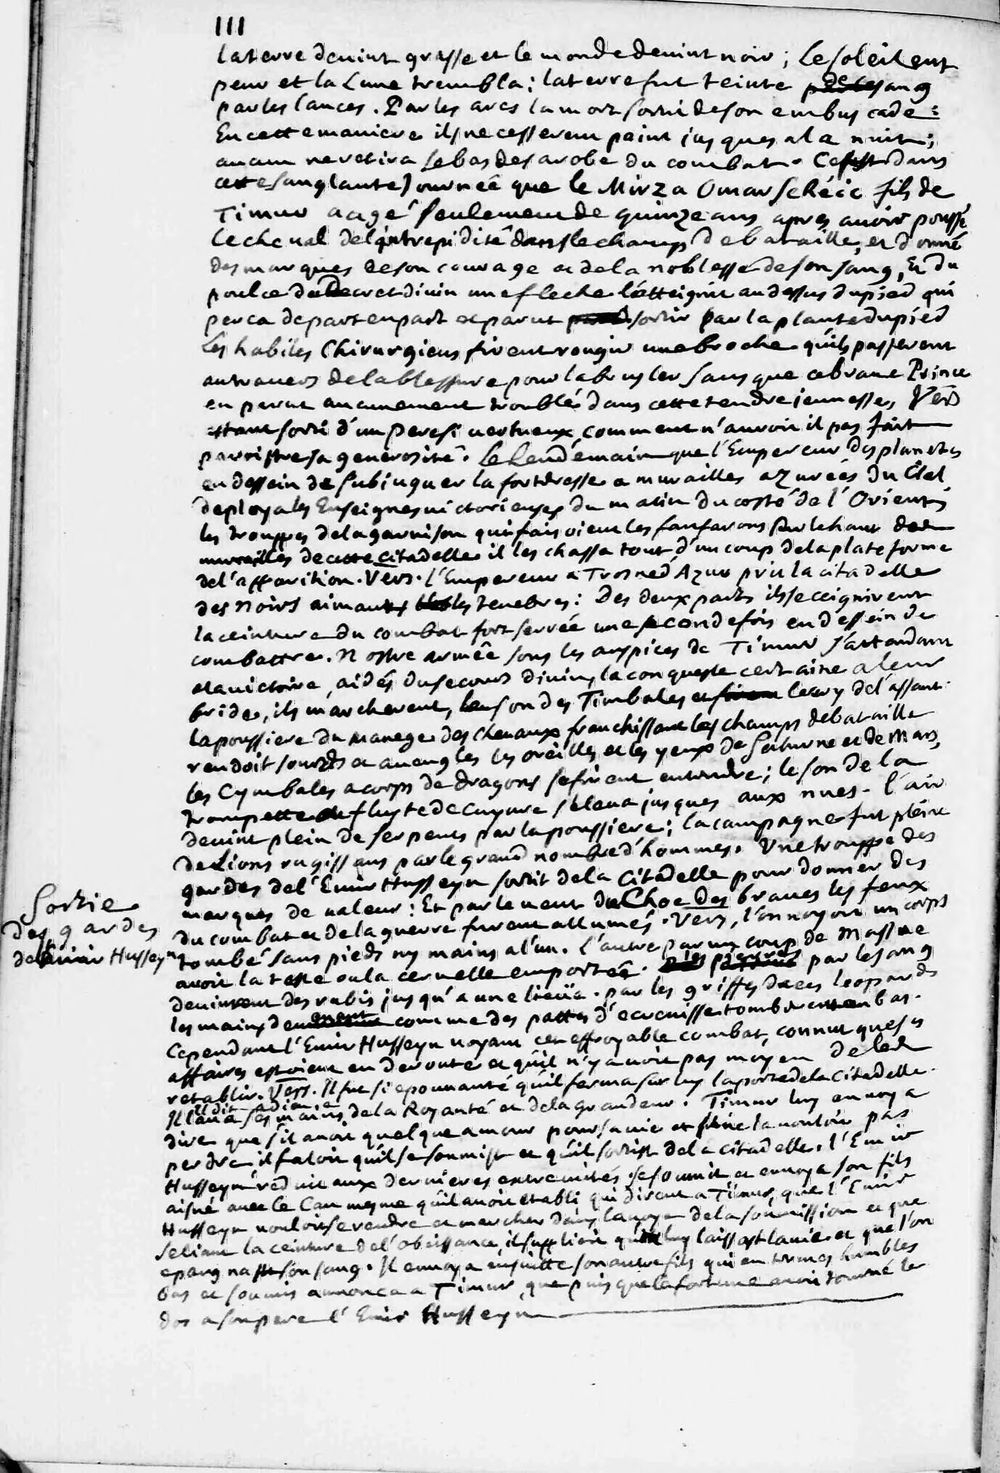 111
la terre devint grasse et le monde devint noir ; Le soleil eut
peur et la Lune trembla ; la terre fut teinte de sang
par les lances. Par les arcs la mort sortit de son embuscade :
En cette maniere ils ne cesserent point jusques a la nuit ;
aucun ne retira le bas de sa robe du combat. Ce fut dans
cette sanglante Journeé que le Mirza Omar Scheic fils de
Timur aagé seulement de quinze ans apres avoir poussé
le cheval de l'intrepidité dans le champ de bataille, et donné
des marques de son courage et de la noblesse de son sang, Et du
poulce du Decret divin une fleche l'atteignit au dessus du pied qui
perca de part en part et parut sortir par la plante du pied
Les habiles Chirurgiens firent rougir une broche qu'ils passerent
au travers de la blessure pour la brusler sans que ce brave Prince
en parut aucunement troublé dans cette tendre jeunesse, Vers
estant sorti d'un pere si vertueux, comment n'auroit il pas fait
paroistre sa generosité. Le lendemain que l'Empereur des planetes
en dessein de subjuguer la forteresse a murailles azurées du Ciel
deploya les Enseignes victorieuses du matin du costé de l'Orient,
les trouppes de la garnison qui faisoient les fanfarons sur le haut des
murailles de cette citadelle il les chassa tout d'un coup de la plate forme
de l'apparition. Vers. l'Empereur a Trosne d'Azur prit la citadelle
des Noirs aimants les tenebres : Des deux parts ils se ceignirent
la ceinture du combat fort serrée une seconde fois en dessein de
combattre. Nostre armée sous les auspices de Timur s'attendant
a la victoire, aidés du secours divin, la conqueste certaine a leur
bride, ils marcherent, le son des Timbales et le cry de l'assaut
la poussiere du manege des chevaux franchissant les champs de bataille
rendoit sourds et aveugles les oreilles et les yeux de Saturne et de Mars,
les Cymbales a corps de dragons se firent entendre ; le son de la
trompette et fluste de cuyvre s'eleva jusques aux nues. l'air
devint plein de serpents par la poussiere ; la campagne fut pleine
de Lions rugissans par le grand nombre d'hommes. Une trouppe des
gardes de l'Emir Husseyn sortit de la Citadelle pour donner des
marques de valeur : Et par le vent du Choc des braves les feux
du combat et de la guerre furent allumés. Vers, l'on voyoit un corps
Sortie
des gardes
de l'Emir Husseyn
tombé sans pieds ny mains a l'un. l'autre par un coup de Massue
avoir la teste ou la cervelle emportée. Les pierres par le sang
devinrent des rubis jusqu'a une lieüe. par les griffes de ces leopards
les mains comme des pattes d'ecrevisse tomberent en bas.
Cependant l'Emir Husseyn voyant cet effroyable combat, connut que ses
affaires estoient en deroute et qu'il n'y avoit pas moyen de les
retablir. Vers. Il fut si epouvanté qu'il ferma sur luy la porte de la Citadelle.
Il lava ses mains de la Royauté et de la grandeur. Timur luy envoya
dire que s'il avoit quelque amour pour sa vie et ne la vouloir pas
perdre il faloit qu'il se soumist et qu'il sortist de la citadelle. l'Emir
Husseyn reduit aux dernieres extremités se soumit et envoya son fils
aisné avec le Can mesme qu'il avoit etabli qui dirent a Timur que l'Emir
Husseyn vouloit se rendre et marcher dans la voye de la soumission et que
se liant la ceinture de l'obeissance, il supplioit qu'on luy laissast la vie et que l'on
epargnast son sang. Il envoya ensuitte son autre fils qui en termes humbles
bas et soumis annonca a Timur, que puis que la fortune avoit tourné le
dos a son pere l'Emir Husseyn